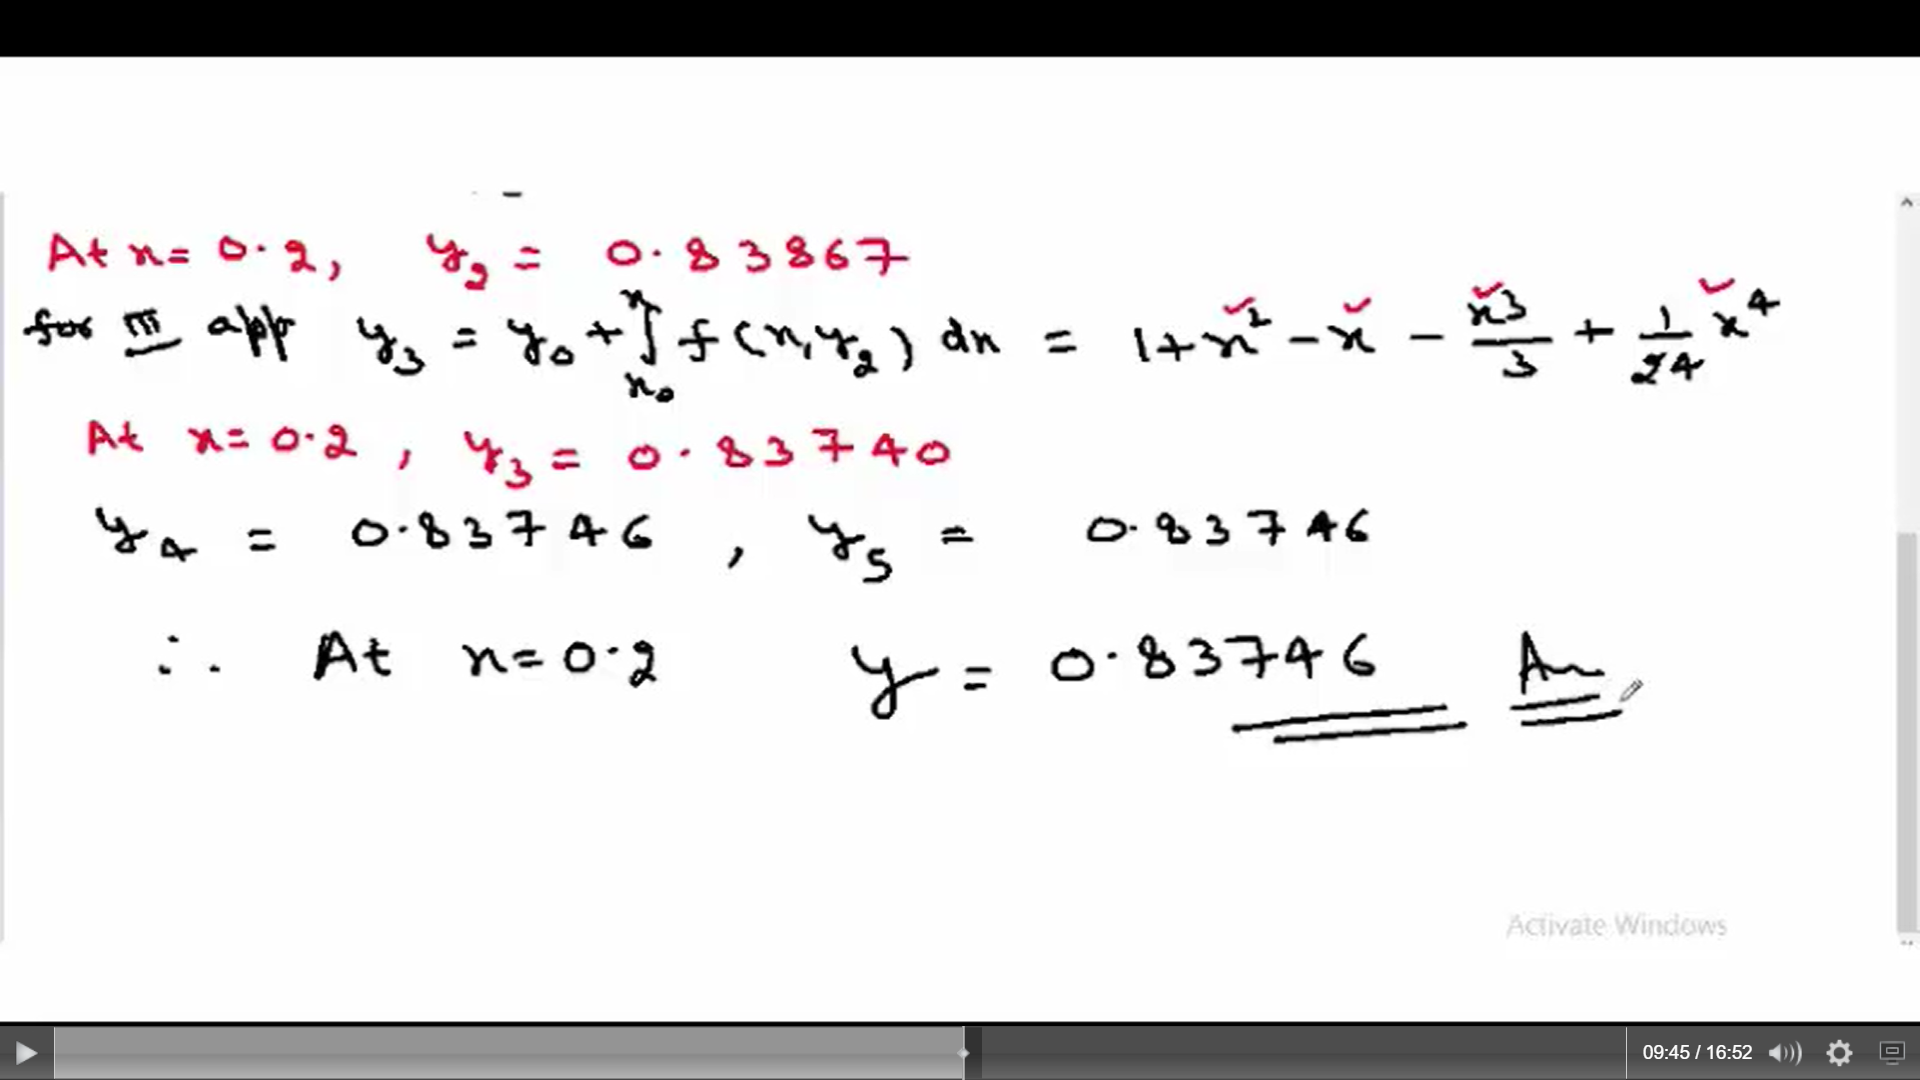 At x = 0.2, y₂ = 0.83867
for III app y₃ = y₀ + ∫ₓ₀ˣ f(x, y₂) dx = 1 + x² - x - x³/3 + 1/24 x⁴
At x = 0.2, y₃ = 0.83740
y₄ = 0.83746, y₅ = 0.83746
∴ At x = 0.2 y = 0.83746 An
Activate Windows
09:45 / 16:52